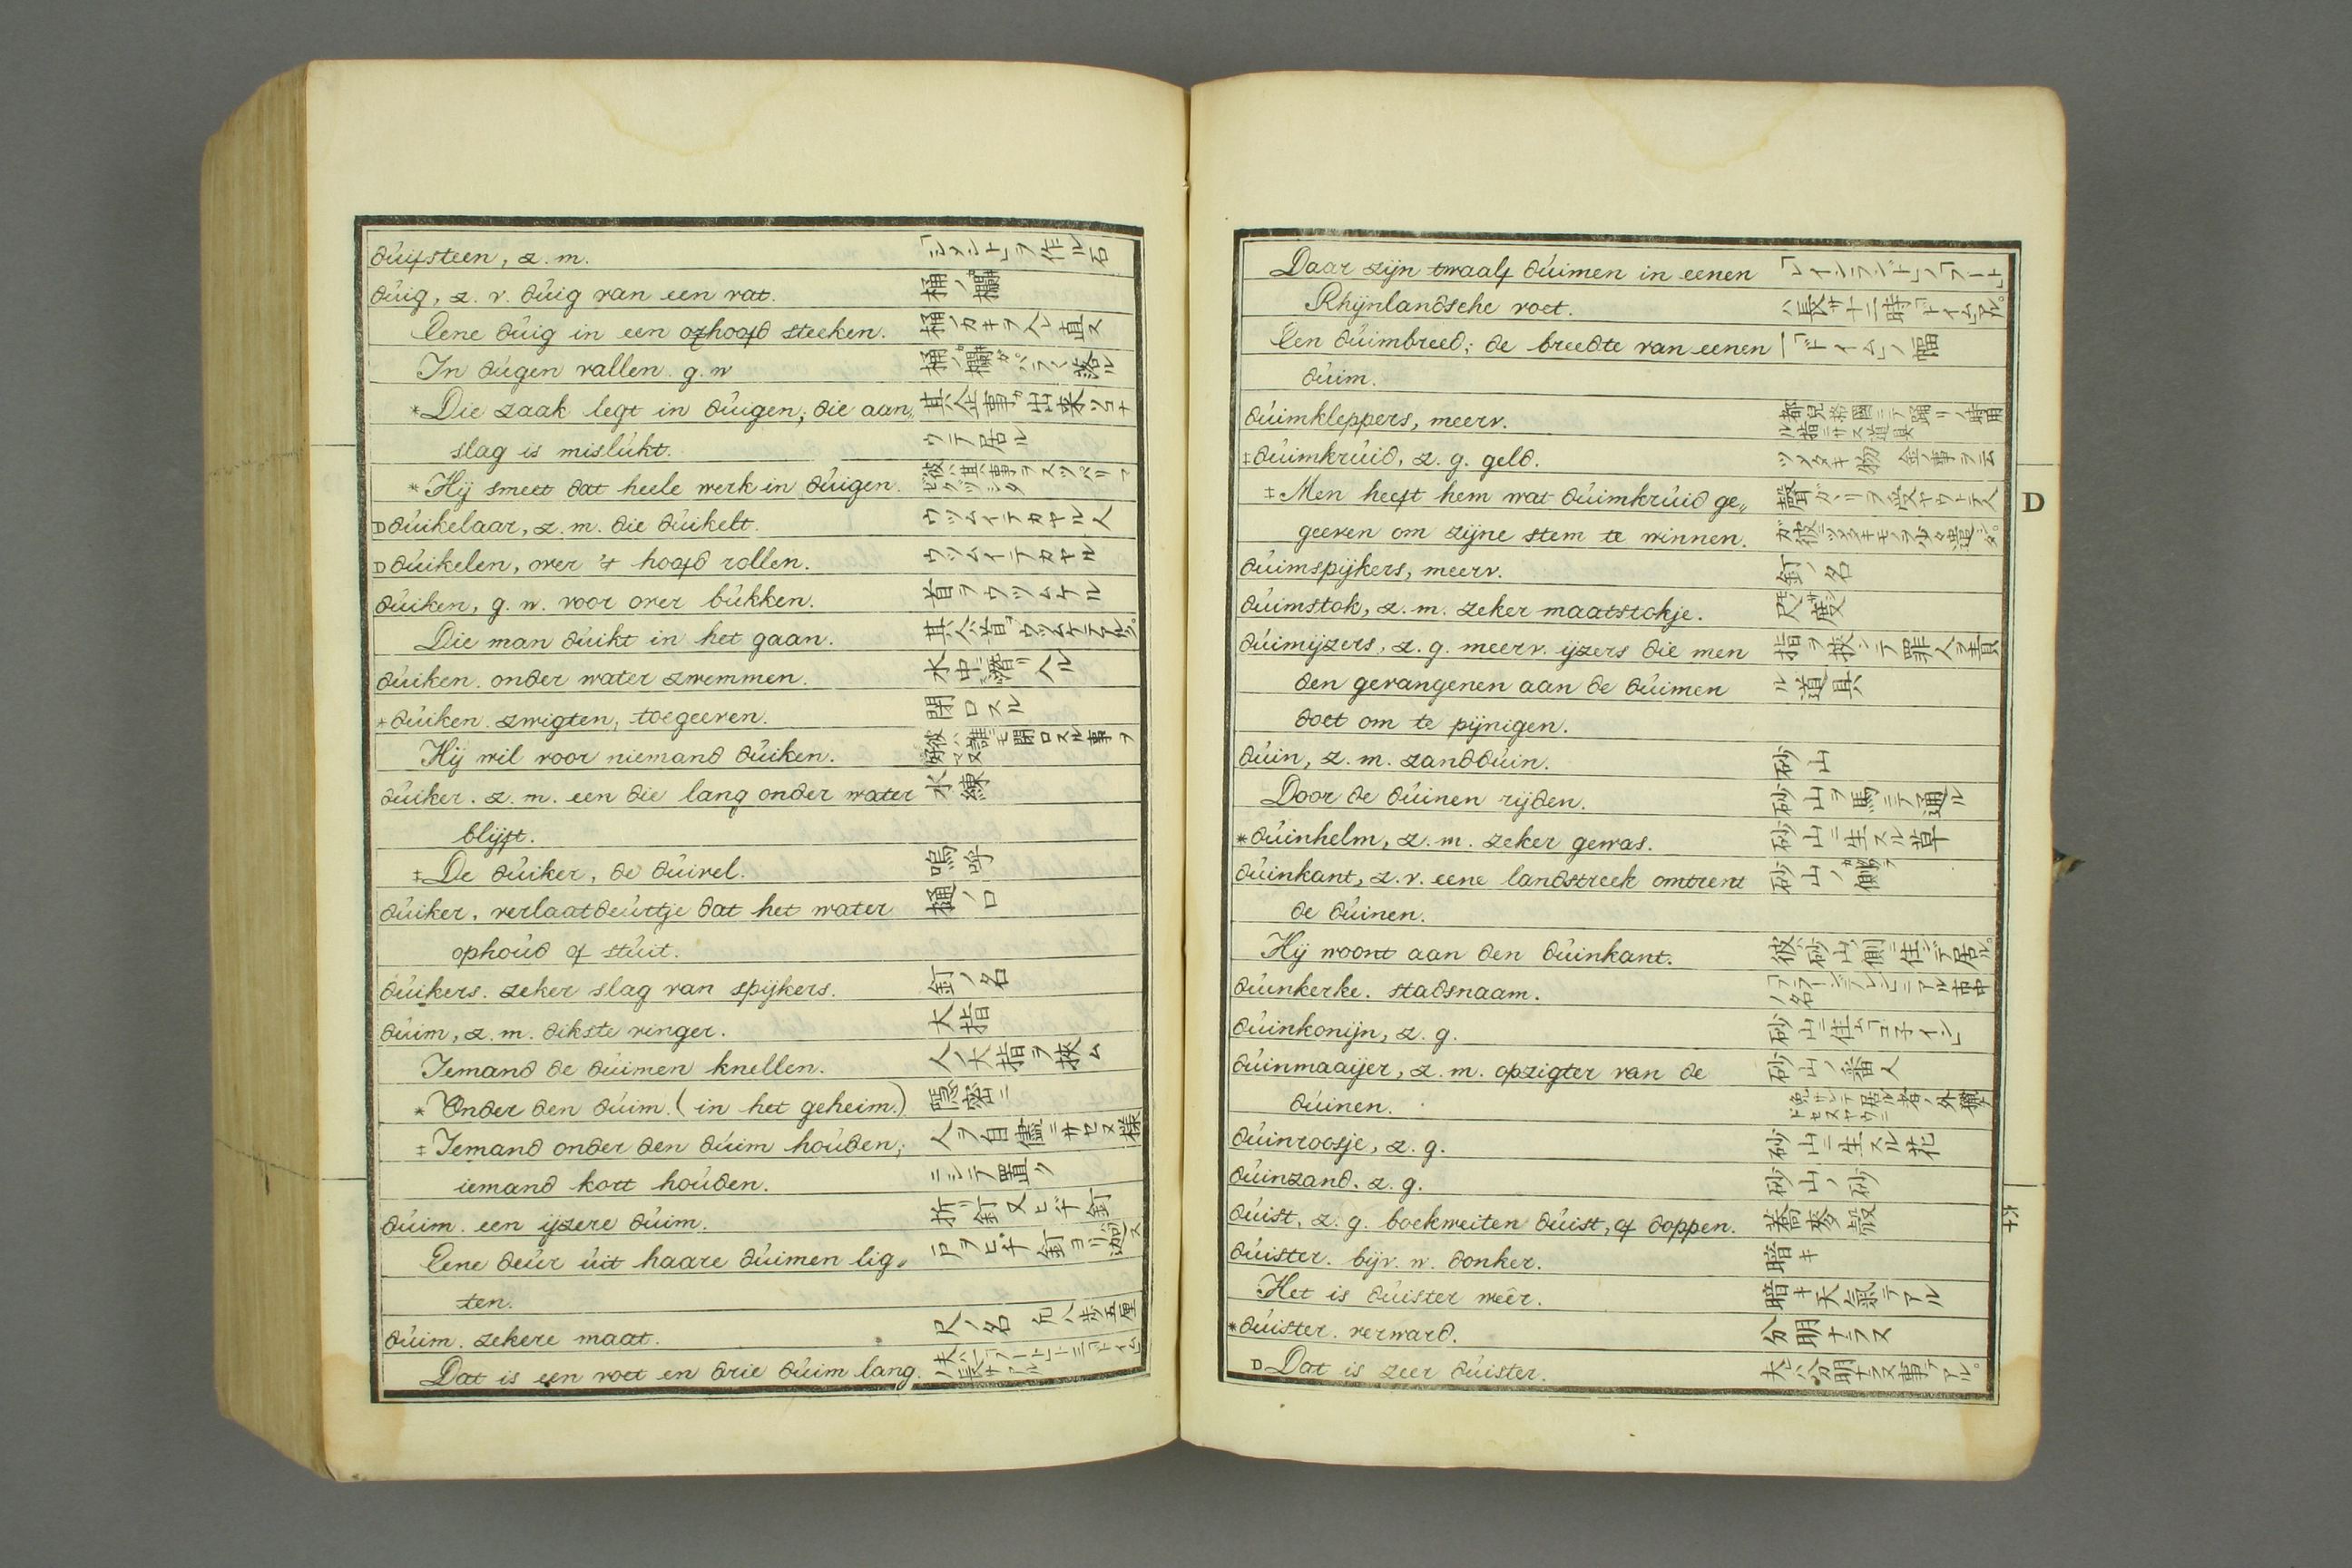 duifsteen, z. m. 「シメント」ヲ作ル石
duig, z. v. duig van een vat. 桶ノ欄
Eene duig in een ozhoofd steeken. 桶ノカキヲ入レ直ス
In duigen vallen. g. w 桶ノ欄ガバラ〱落ル
*Die zaak legt in duigen; die aan„ 其企事
slag is mislukt. ウテ居ル
*Hij smeet dat heele werk in duigen. 彼ハ其事ヲスツペリ
D duikelaar, z. m. die duikelt. ウツムイテカヤル人
D duikelen, over 't hoofd rollen. ウツムイテカヤル
duiken, g. w. voor over bukken. 首ヲウツムケル
Die man duikt in het gaan. 其人首
duiken. onder water zwemmen. 水中ニ潜リ入ル
*duiken. zwigten, toegeeven. 閉口スル
Hij wil voor niemand duiken. 彼ハ誰ニモ閉口スル事ヲ好マヌ
duiker. z. m. een die lang onder water 水練
blijft.
‡De duiker, de duivel. 嗚呼
duiker, verlaatdeurtje dat het water 樋ノ口
ophoud of stuit.
duikers. zeker slag van spijkers. 釘ノ名
duim, z. m. dikste vinger. 大指
Iemand de duimen knellen. 人ノ大指ヲ挾ム
*Onder den duim. (in het geheim.) 隠密ニ
‡Iemand onder den duim houden; 人ヲ自儘ニサセヌ様
iemand kort houden. ニシテ置ク
duim. een ijzere duim. 折釘又ヒヂ釘
Eene deur uit haare duimen lig„ 戸ヲヒヂ釘ヨリ
ten.
duim. zekere maat. 尺ノ名
Dat is een voet en drie duim lang.
Daar zijn twaalf duimen in eenen 「レインランド」ノ「フート」
Rhijnlandsche voet.
Een duimbreed; de breedte van eenen 一「ドイム」ノ幅
duim.
duimkleppers, meerv. 都兒格國ニテ踊リノ時用ル指ニサス道具
‡duimkruid, z. g. geld. 金ノ事ヲ云
‡Men heeft hem wat duimkruid ge„
geeven om zijne stem te winnen.
duimspijkers, meerv. 釘ノ名
duimstok, z. m. zeker maatstokje. 尺度
duimijzers, z. g. meerv. ijzers die men 指ヲ挾ンテ罪人ヲ責
den gevangenen aan de duimen ル道具
doet om te pijnigen.
duin, z. m. zandduin. 砂山
Door de duinen rijden. 砂山ヲ馬ニテ通ル
*duinhelm, z. m. zeker gewas. 砂山ニ生スル草
duinkant, z. v. eene landstreek omtrent 砂山ノ側
de duinen.
Hij woont aan den duinkant. 彼ハ砂山ノ側ニ住シテ居ル。
duinkerke. stadsnaam. ニアル市中ノ名
duinkonijn, z. g. 砂山ニ住ム「コネイン」
duinmaaijer, z. m. opzigter van de 砂山ノ番人
duinen.
duinroosje, z. g. 砂山ニ生スル花
duinzand. z. g. 砂山ノ砂
duist, z. g. boekweiten duist, of doppen. 蕎麥殻
duister. bijv. w. donker. 暗キ
Het is duister weêr. 暗キ天氣テアル
*duister. verward. 分明ナラス
D Dat is zeer duister. 夫ハ分明ナラヌ事テアル。
D